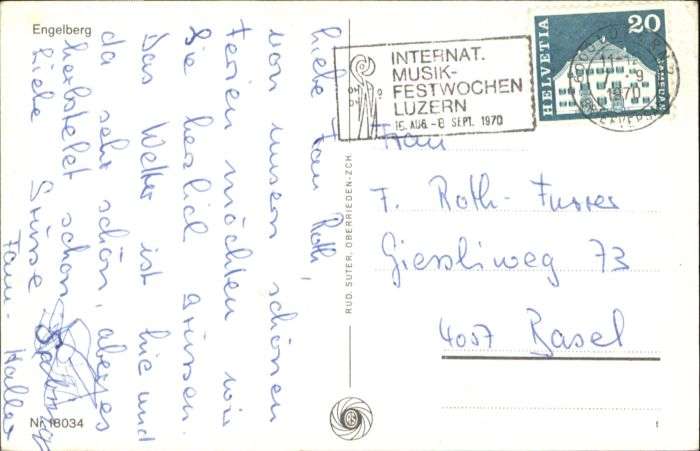 Engelberg
Liebe Frau Roth,
von unsern schönen
Ferien möchten wir
Sie herzlich grüssen.
Das Wetter ist hie und
da sehr schön, aber es
herbstelet schon.
Liebe Grüsse
Fam. Haller
Nr. 18034
RUD. SUTER, OBERRIEDEN-ZCH.
INTERNAT.
MUSIK-
FESTWOCHEN
LUZERN
15. AUG. - 8 SEPT. 1970
HELVETIA 20
SAMEDAN
1970
Frau
F. Roth-Furrer
Giessliweg 73
4057 Basel
1